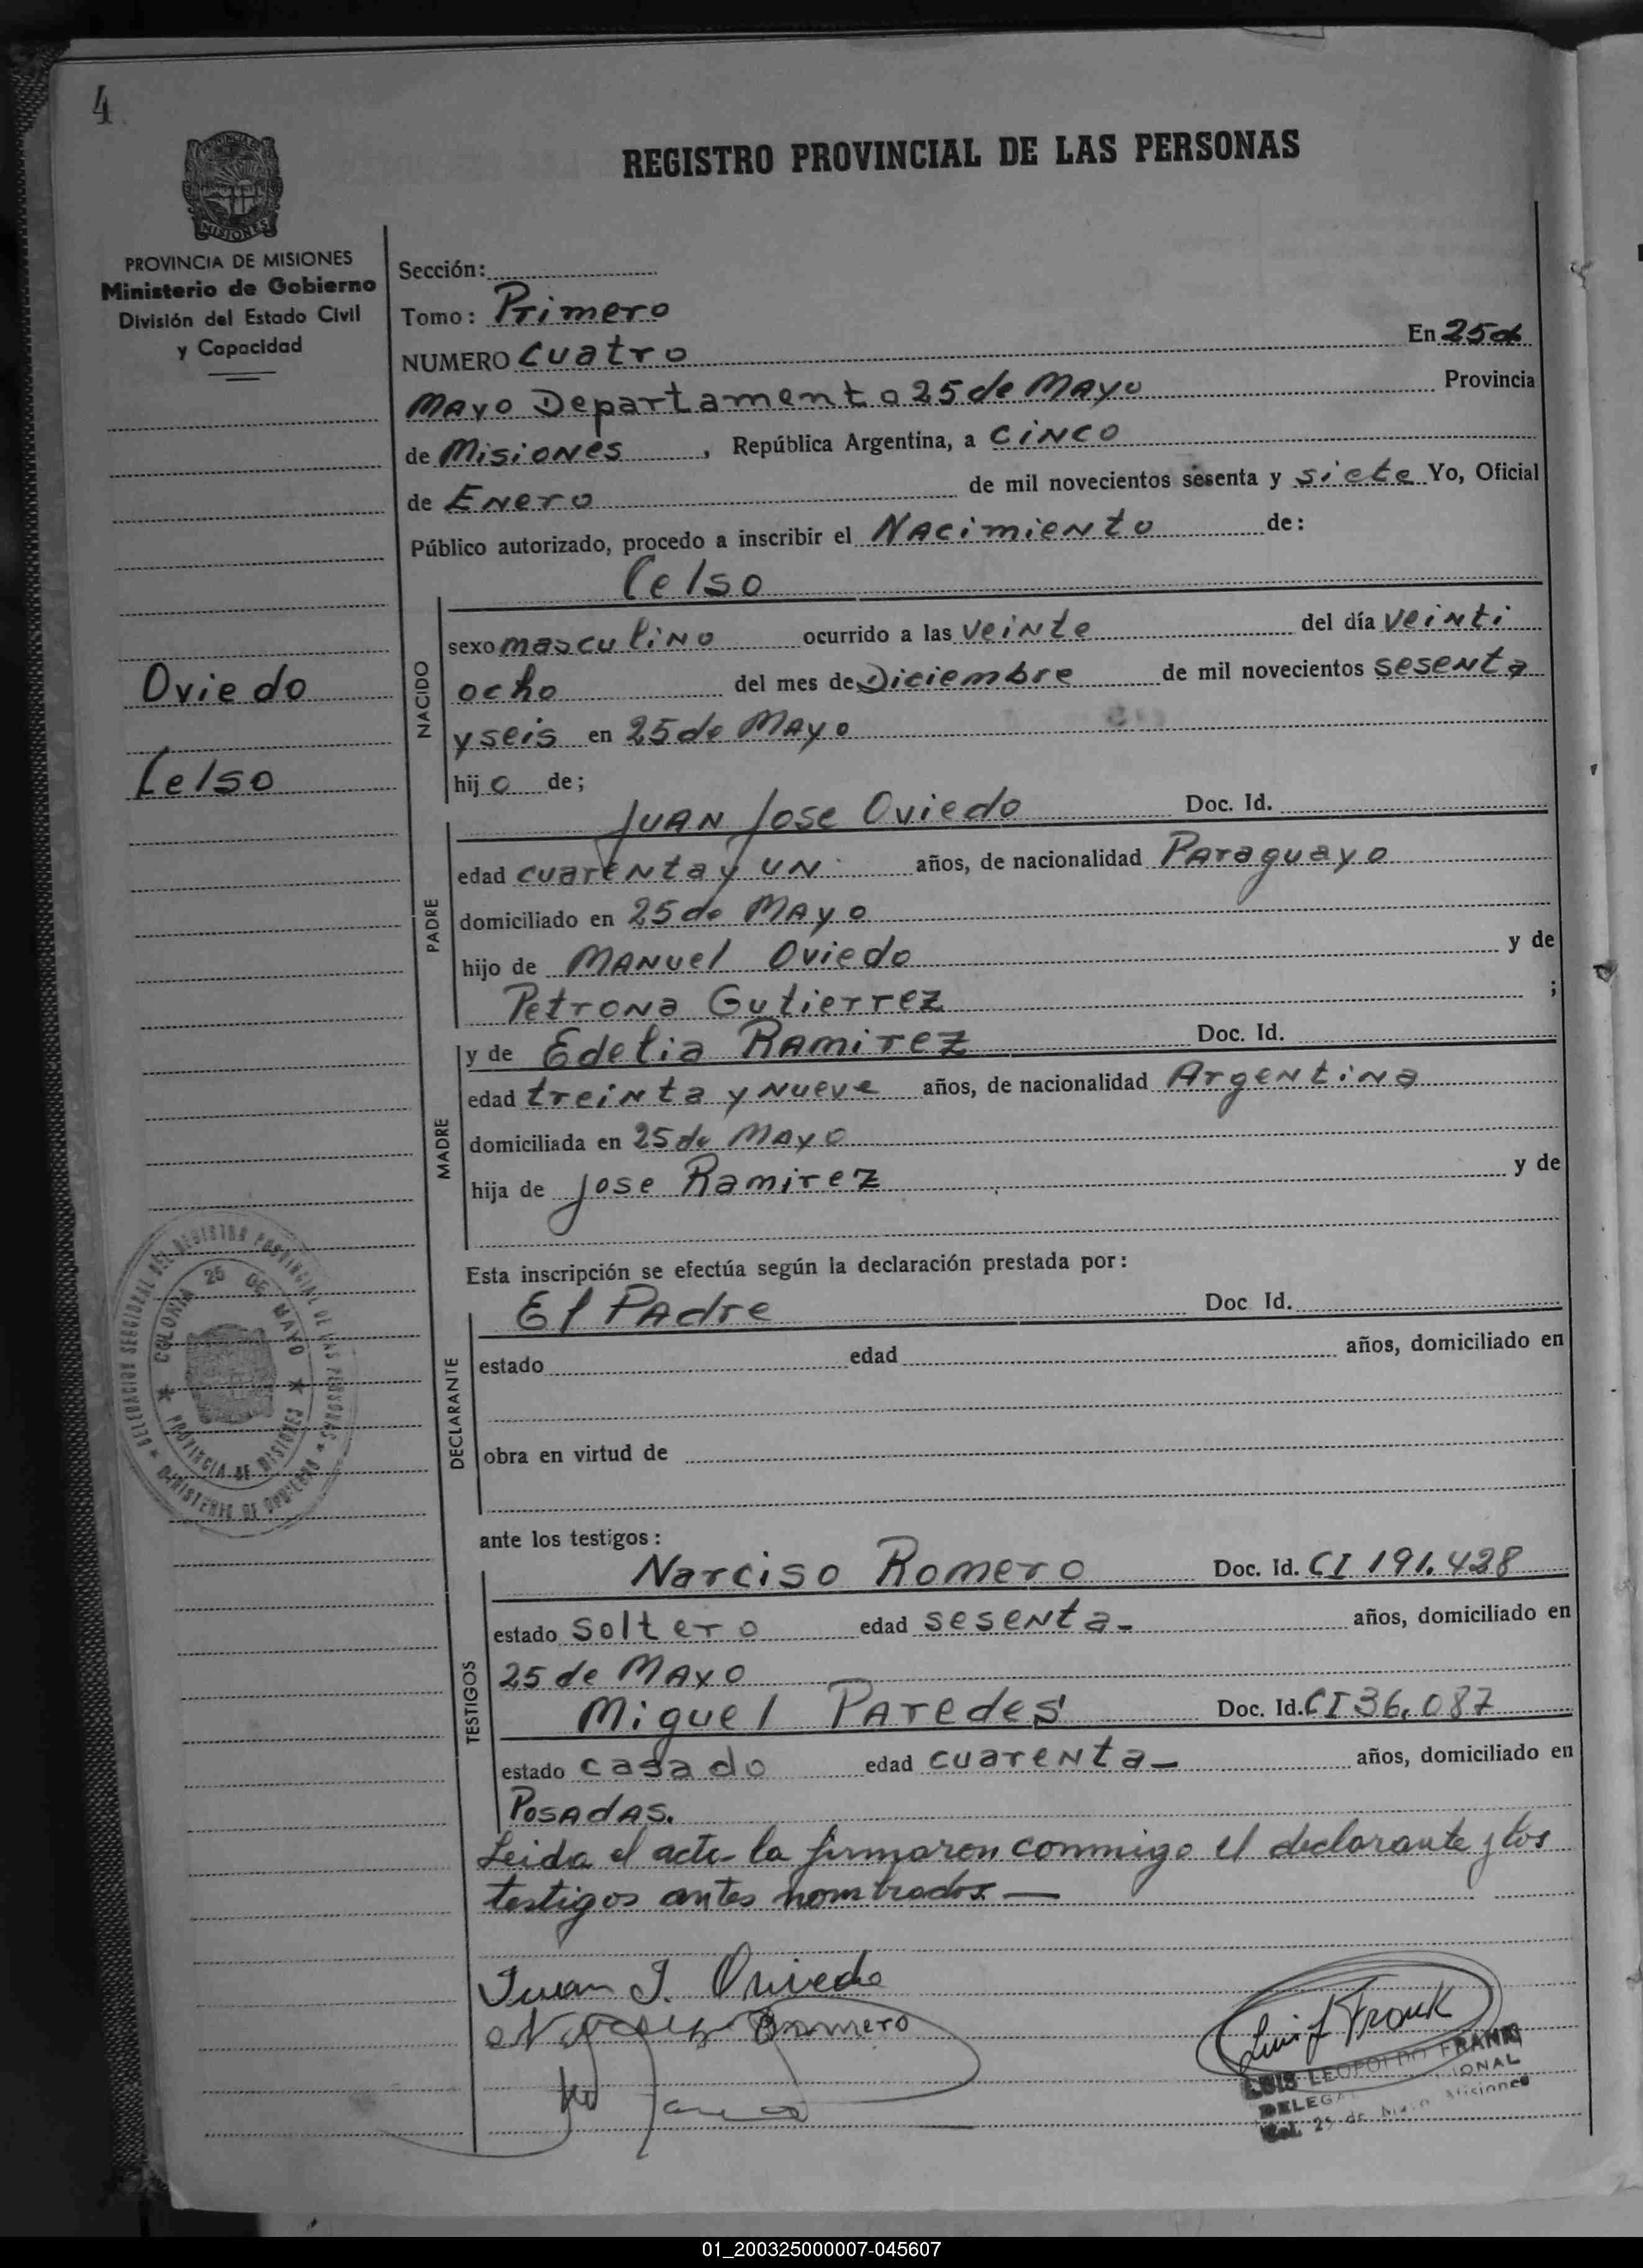 4
MISIONES
REGISTRO PROVINCIAL DE LAS PERSONAS
PROVINCIA DE MISIONES
Ministerio de Gobierno
División del Estado Civil
y Capacidad
Oviedo
Celso
Sección:
Tomo: Primero
NUMERO Cuatro En 25 de
Mayo Departamento 25 de Mayo Provincia
de Misiones, República Argentina, a cinco
de Enero de mil novecientos sesenta y siete Yo, Oficial
Público autorizado, procedo a inscribir el Nacimiento de:
Celso
NACIDO
sexo masculino ocurrido a las veinte del día veinti
ocho del mes de Diciembre de mil novecientos sesenta
y seis en 25 de Mayo
hijo de;
Juan Jose Oviedo Doc. Id.
PADRE
edad cuarenta y un años, de nacionalidad Paraguayo
domiciliado en 25 de Mayo
hijo de Manuel Oviedo y de
Petrona Gutierrez ;
y de Edelia Ramirez Doc. Id.
MADRE
edad treinta y nueve años, de nacionalidad Argentina
domiciliada en 25 de Mayo
hija de Jose Ramirez y de
Esta inscripción se efectúa según la declaración prestada por:
El Padre Doc Id.
DECLARANTE
estado edad años, domiciliado en
obra en virtud de
ante los testigos:
Narciso Romero Doc. Id. CI 191.428
TESTIGOS
estado soltero edad sesenta- años, domiciliado en
25 de Mayo
Miguel Paredes Doc. Id. CI 36.087
estado casado edad cuarenta- años, domiciliado en
Posadas.
Leida el acta la firmaron conmigo el declarante y los
testigos antes nombrados.—
Juan J. Oviedo
Romero
Luis L Frank
LUIS LEOPOLDO FRANK
Col. 25 de Mayo Misiones
DELEGACION SECCIONAL DEL REGISTRO PROVINCIAL DE LAS PERSONAS
COLONIA 25 DE MAYO
PROVINCIA DE MISIONES
01_200325000007-045607